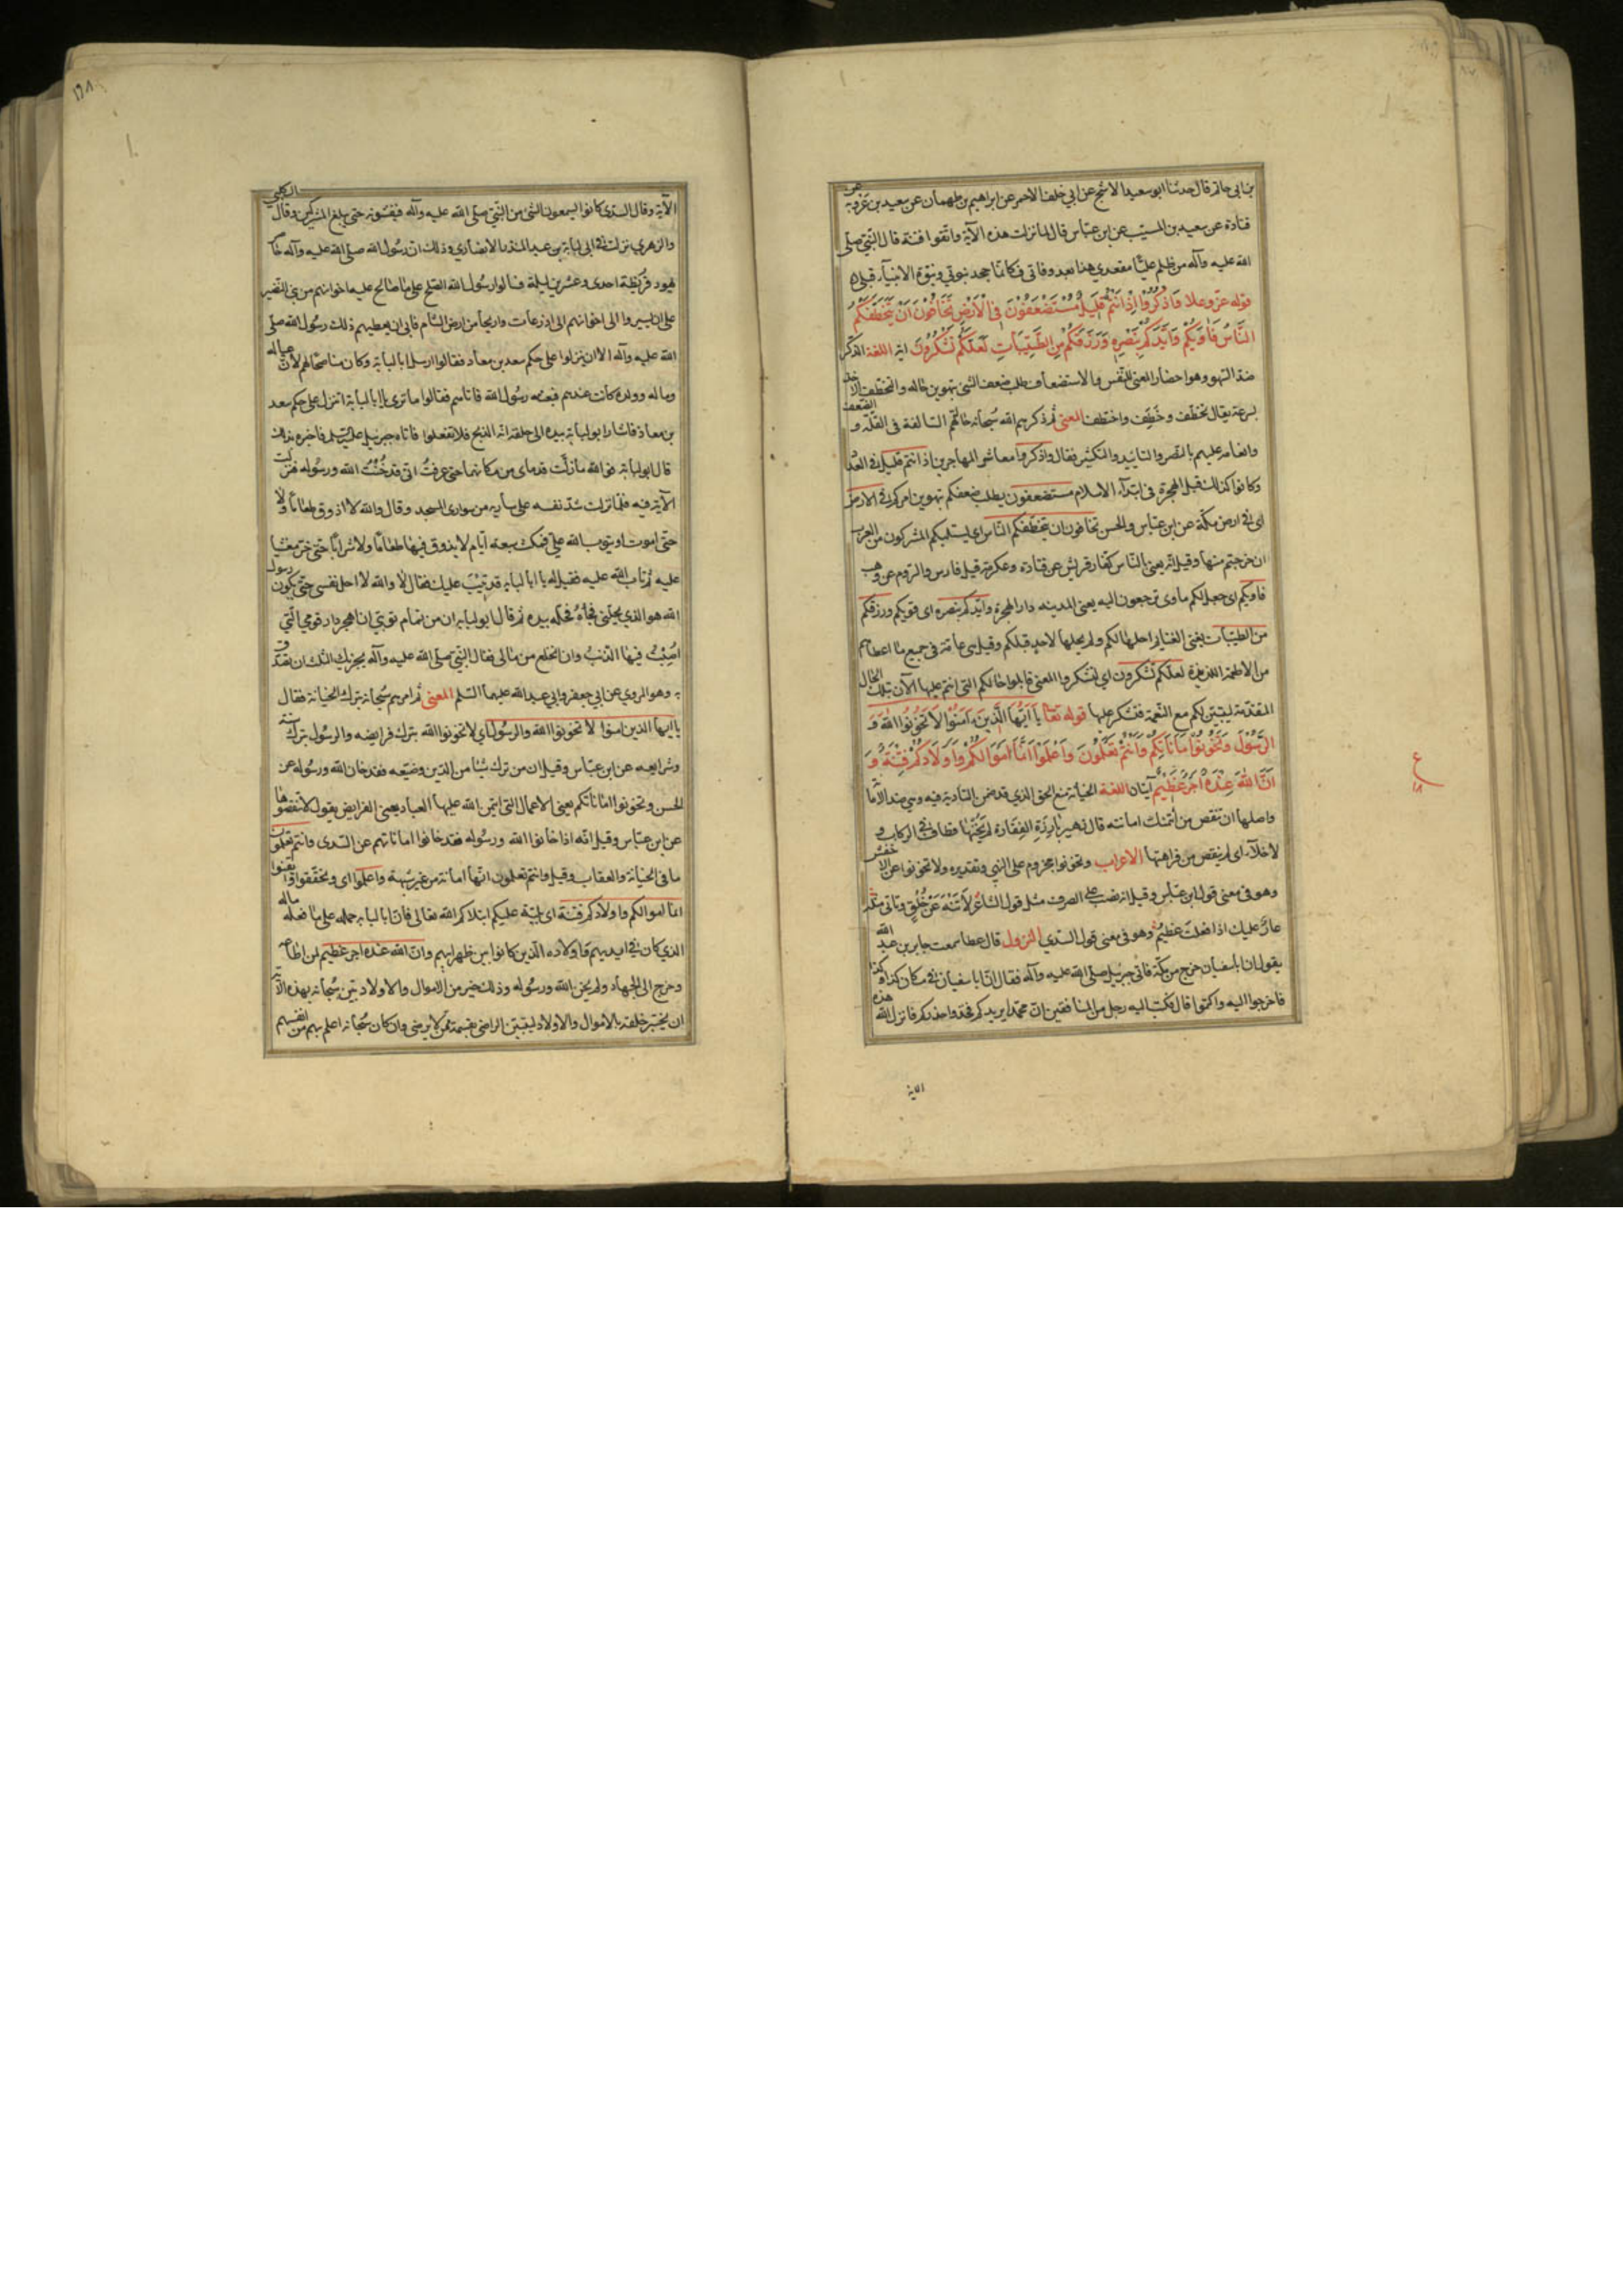 بن ابي حازم قال حدثنا ابو سعيد الاشج عن ابي خلف الاحمر عن ابراهيم بن طهمان عن سعيد بن عروبة عن
قتادة عن سعيد بن المسيب عن ابن عباس قال لما نزلت هذه الآية واتقوا فتنة قال النبي صلى
الله عليه وآله من ظلم عليًّا مقعدي هذا بعد وفاتي فكانما جحد نبوتي ونبوة الانبياء قبلي
قوله عز وعلا وَاذْكُرُوا إِذْ أَنْتُمْ قَلِيلٌ مُسْتَضْعَفُونَ فِي الْأَرْضِ تَخَافُونَ أَنْ يَتَخَطَّفَكُمُ
النَّاسُ فَآوَيكُمْ وَأَيَّدَكُمْ بِنَصْرِهِ وَرَزَقَكُمْ مِنَ الطَّيِّبَاتِ لَعَلَّكُمْ تَشْكُرُونَ آية اللغة الذكر
ضد السهو وهو احضار المعنى للنفس والاستضعاف طلب ضعف الشئ بتهوين حاله والتخطف الاخذ
بسرعة يقال تخطف وخطف واختطف المعنى ثم ذكرهم الله سبحانه حالتهم السالفة في القلة والضعف و
وانعامه عليهم بالنصر والتاييد والتكثير فقال واذكروا معاشر المهاجرين اذ انتم قليل في العدد
وكانوا كذلك قبل الهجرة في ابتداء الاسلام مستضعفون يطلب ضعفكم بتهوين امركم في الارض
اى في ارض مكة عن ابن عباس والحسن تخافون ان يتخطفكم الناس اى يستلبكم المشركون من العرب
ان خرجتم منها وقيل انه يعني بالناس كفار قريش عن قتادة وعكرمة وقيل فارس والروم عن وهب
فاويكم اى جعل لكم ماوى ترجعون اليه يعني المدينة دار الهجرة وايدكم بنصره اى قويكم ورزقكم
من الطيبات يعني الغنايم احلها لكم ولم يحلها لاحد قبلكم وقيل هى عامة في جميع ما اعطاهم
من الاطعمة اللذيذة لعلكم تشكرون اي لتشكروا والمعنى قابلوا حالكم التي انتم عليها الآن بتلك الحال
المتقدمة ليتبين لكم مع النعمة فتشكر عليها قوله تعا يَا أَيُّهَا الَّذِينَ آمَنُوا لَا تَخُونُوا اللَّهَ وَ
الرَّسُولَ وَتَخُونُوا أَمَانَاتِكُمْ وَأَنْتُمْ تَعْلَمُونَ وَاعْلَمُوا أَنَّمَا أَمْوَالُكُمْ وَأَوْلَادُكُمْ فِتْنَةٌ وَ
أَنَّ اللَّهَ عِنْدَهُ أَجْرٌ عَظِيمٌ آيتان اللغة الخيانة منع الحق الذي قد ضمن التادية فيه وهي ضد الامانة
واصلها ان تنقص من ائتمنك امانته قال زهير بارزة الفقارة لم يخنها قطاف في الركاب و
لا خلاء اى لم ينقص من فراهتها الاعراب وتخونوا مجزوم على النهي وتقديره ولا تخونوا عن الاخفش
وهو في معنى قول ابن عباس وقيل انه نصب على الصرف مثل قول الشاعر لا تنه عن خلق وتاتى مثله
عار عليك اذا فعلت عظيم وهو في معنى قول السدي النزول قال عطا سمعت جابر بن عبد الله
يقول ان ابا سفيان خرج من مكة فاتى جبرئيل صلى الله عليه وآله فقال ان ابا سفيان في مكان كذا وكذا
فاخرجوا اليه واكتموا قال فكتب اليه رجل من المنافقين ان محمدا يريدكم فخذوا حذركم فانزل الله هذه
الآية
ع
١٨
١٩٨
الآية وقال السدي كانوا يسمعون الشئ من النبي صلى الله عليه وآله فيفشونه حتى يبلغ المشركين وقال الكلبي
والزهري نزلت في ابي لبابة بن عبد المنذر الانصاري وذلك ان رسول الله صلى الله عليه وآله حاصر
يهود قريظة احدى وعشرين ليلة فسالوا رسول الله الصلح على ما صالح عليه اخوانهم من بني النضير
على ان يسيروا الى اخوانهم الى اذرعات واريحا من ارض الشام فابى ان يعطيهم ذلك رسول الله صلى
الله عليه وآله الا ان ينزلوا على حكم سعد بن معاذ فقالوا ارسل ابا لبابة وكان مناصحا لهم لان عياله
وماله وولده كانت عندهم فبعثه رسول الله فاتاهم فقالوا ما ترى يا ابا لبابة اننزل على حكم سعد
بن معاذ فاشار ابو لبابة بيده الى حلقه انه الذبح فلا تفعلوا فاتاه جبرئيل عليه السلم فاخبره بذلك
قال ابو لبابة فوالله ما زلت قدماى من مكانهما حتى عرفت انى قد خنت الله ورسوله فنزلت
الآية فيه فلما نزلت شد نفسه على سارية من سوارى المسجد وقال والله لا اذوق طعاما ولا
حتى اموت او يتوب الله علي فمكث سبعة ايام لا يذوق فيها طعاما ولا شرابا حتى خر مغشيا
عليه ثم تاب الله عليه فقيل له يا ابا لبابة قد تيب عليك فقال لا والله لا احل نفسي حتى يكون رسول
الله هو الذي يحلني فجاءه فحله بيده ثم قال ابو لبابة ان من تمام توبتي ان اهجر دار قومي التي
اصبت فيها الذنب وان انخلع من مالى فقال النبي صلى الله عليه وآله يجزيك الثلث ان تصدق
به وهو المروي عن ابي جعفر وابي عبد الله عليهما السلم المعنى ثم امرهم سبحانه بترك الخيانة فقال
يا ايها الذين امنوا لا تخونوا الله والرسول اي لا تخونوا الله بترك فرايضه والرسول بترك سنته
وشرايعه عن ابن عباس وقيل ان من ترك شيئا من الدين وضيعه فقد خان الله ورسوله عن
الحسن وتخونوا اماناتكم يعني الاعمال التى ايتمن الله عليها العباد يعني الفرايض يقول لا تنقصوها
عن ابن عباس وقيل انه اذا خانوا الله ورسوله فقد خانوا اماناتهم عن السدى وانتم تعلمون
ما فى الخيانة والعقاب وقيل وانتم تعلمون انها امانة من غير شبهة واعلموا اى وتحققوا وايقنوا
انما اموالكم واولادكم فتنة اى بلية عليكم ابتلاكم الله تعالى فان ابا لبابة حمله على ما فعله ماله
الذي كان في ايديهم واولاده الذين كانوا بين ظهرانيهم وان الله عنده اجر عظيم لمن اطاعه
وخرج الى الجهاد ولم يخن الله ورسوله وذلك خير من الاموال والاولاد بين سبحانه بهذه الآية
ان يختبر خلقه بالاموال والاولاد ليتبين الراضى بقسمه ممن لا يرضى وان كان سبحانه اعلم بهم من انفسهم